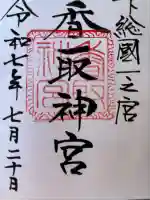 下総國一之宮
香取神宮
令和七年七月二十日